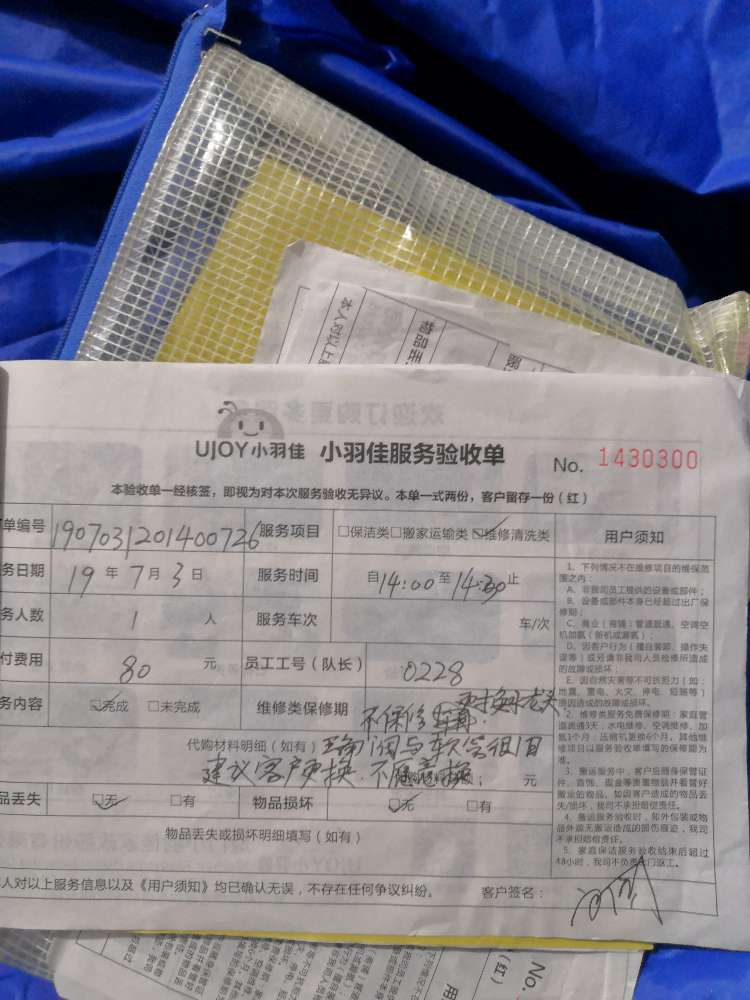 本人对以上服
物品丢
服
欢迎订购更多服务
UJOY小羽佳 小羽佳服务验收单 No. 1430300
本验收单一经核签,即视为对本次服务验收无异议。本单一式两份,客户留存一份(红)
单编号 190703201400726 服务项目 □保洁类□搬家运输类☑维修清洗类 用户须知
务日期 19年7月3日 服务时间 自14:00至14:30止
务人数 1人 服务车次 车/次
付费用 80元 员工工号(队长) 0228
务内容 ☑完成 □未完成 维修类保修期 不保修 更换水龙头
代购材料明细(如有) 三角阀与软管很旧
建议客户更换.不愿意换 元
品丢失 ☑无 □有 物品损坏 ☑无 □有
物品丢失或损坏明细填写(如有)
人对以上服务信息以及《用户须知》均已确认无误,不存在任何争议纠纷。 客户签名:
1、下列情况不在维修项目的维保范
围之内:
A、非我司员工提供的设备或部件;
B、设备或部件本身已经超过出厂保
修期;
C、商业(商铺)管道疏通、空调空
机加氨(新机或漏氨);
D、因客户行为(擅自装卸、操作失
误等)或另请非我司人员检修所造成
的故障或损坏;
E、因自然灾害等不可抗拒力(如:
地震、雷电、火灾、停电、短路等)
原因造成的故障或损坏。
2、维修类服务免费保修期:家庭管
道疏通3天,水电维修、空调维修、加
氨1个月,压缩机更换6个月。其他维
修项目以服务验收单填写的保修期为
准。
3、搬运服务中,客户应随身保管证
件、首饰、现金等贵重物品并看管好
搬运的物品。如因客户造成的物品丢
失/损坏,我司不承担赔偿责任。
4、搬运服务验收时,如外包装或物
品外面无搬运造成的损伤痕迹,我司
不承担赔偿责任。
5、家庭保洁服务验收结束后超过
48小时,我司不负责上门返工。
No.
(红)
用